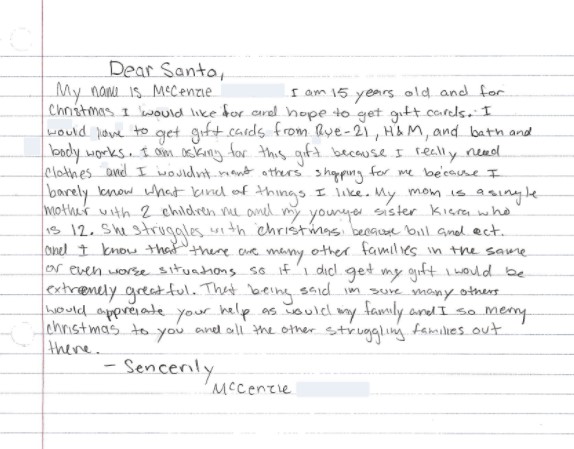 Dear Santa,
My name is McCenzie I am 15 years old and for
Christmas I would like for and hope to get gift cards. I
would love to get gift cards from Rue-21, H&M, and bath and
body works. I am asking for this gift because I really need
clothes and I wouldnt want others shopping for me because I
barely know what kind of things I like. My mom is a single
mother with 2 children me and my younger sister Kiara who
is 12. She struggles with christmas because bill and ect.
and I know that there are many other families in the same
or even worse situations so if I did get my gift I would be
extremely greatful. That being said im sure many others
would appreiate your help as would my family and I so merry
christmas to you and all the other struggling families out
there.
- Sencerily
McCenzie